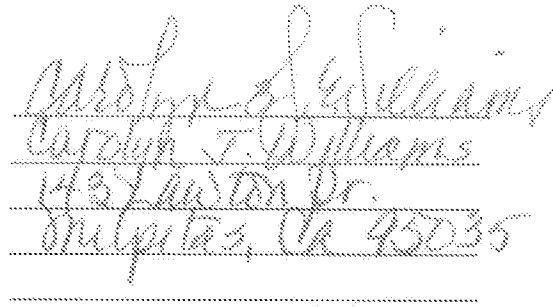 Carolyn J. Williams
Carolyn J. Williams
143 Lawton Dr.
Milpitas, CA 95035